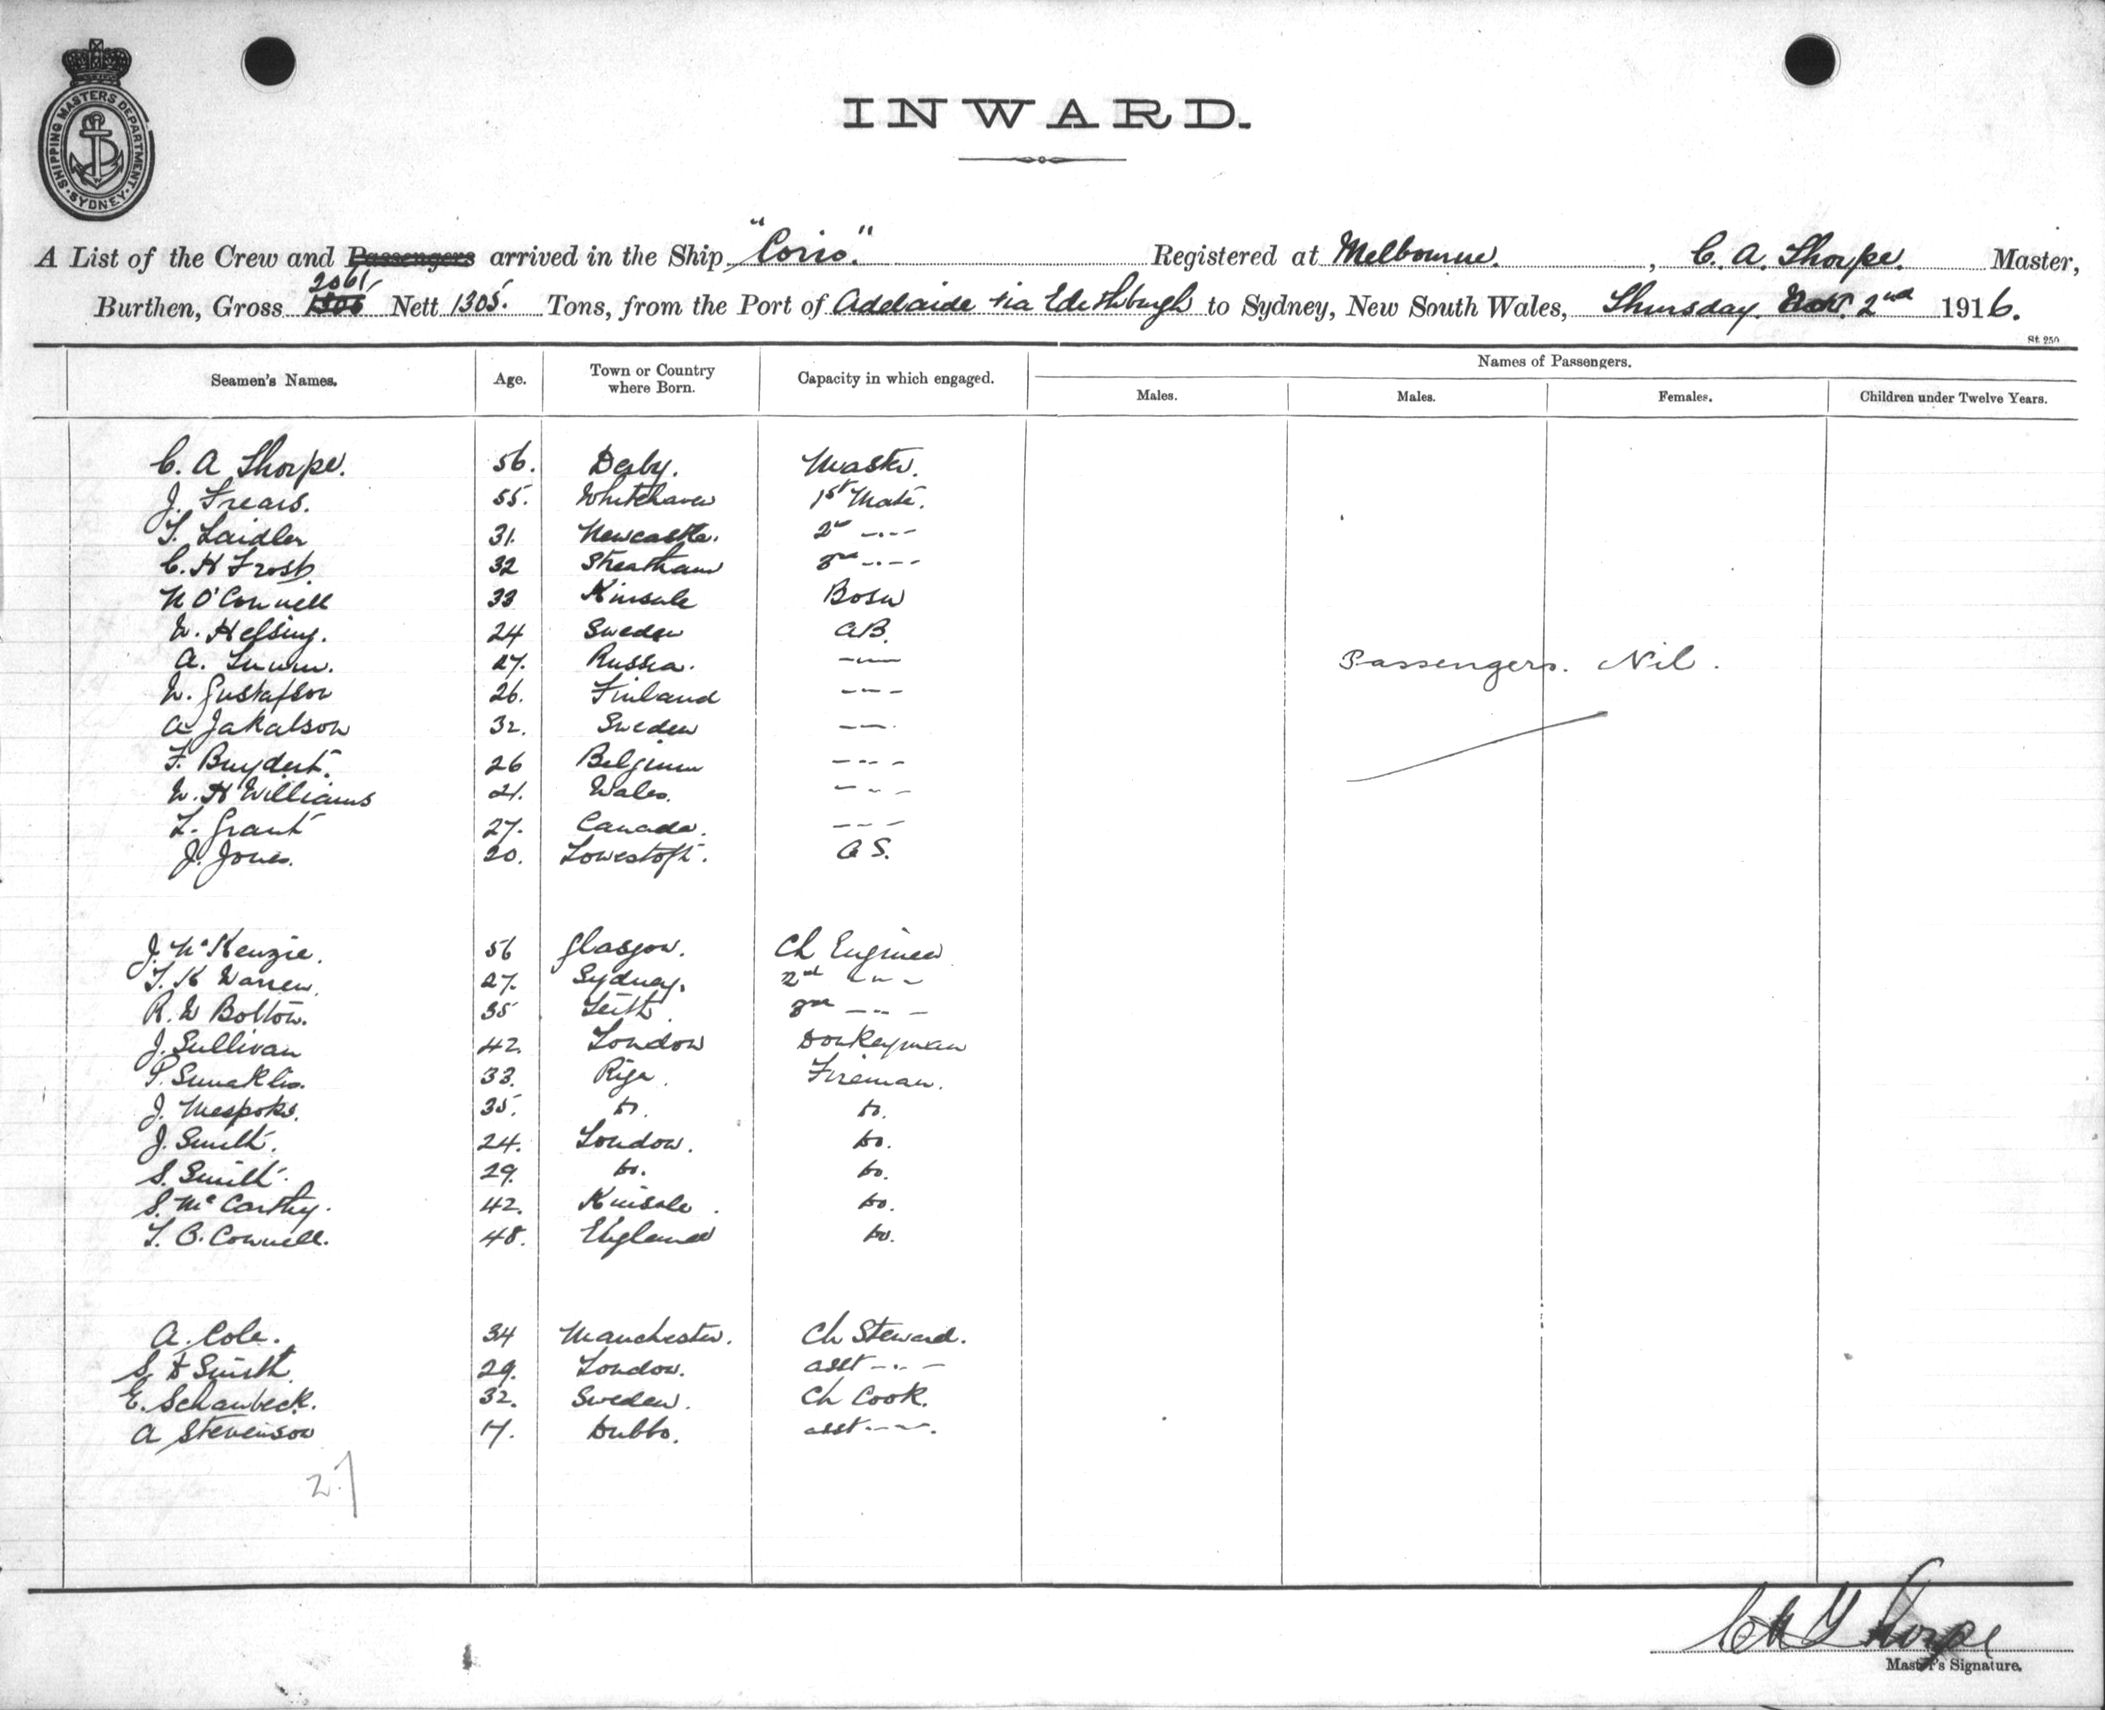 SHIPPING MASTERS DEPARTMENT. SYDNEY.
INWARD.
A List of the Crew and Passengers arrived in the Ship "Corio." Registered at Melbourne. , C. A. Thorpe. Master,
2061
Burthen, Gross 1306 Nett 1305. Tons, from the Port of Adelaide via Edithburgh to Sydney, New South Wales, Thursday. 2nd 1916.
St. 250
Seamen's Names. Age. Town or Country where Born. Capacity in which engaged. Names of Passengers.
Males. Males. Females. Children under Twelve Years.
C. A Thorpe. 56. Derby. Master.
J. Frears. 55. Whitehaven 1st Mate.
T. Laidler 31. Newcastle. 2nd -.--
C. H Frost. 32 Streatham 3rd -.--
N O'Connell 33 Kinsale Bosn
W. Helsing. 24 Sweden AB.
A. 27. Russia. ---
W. Gustafson 26. Finland ---
A Jakalson 32. Sweden ---
F. Buydert. 26 Belgium ---
W. H Williams 21. Wales. ---
L. Grant 27. Canada. ---
J. Jones. 20. Lowestoft. O S.
Passengers. Nil.
J. McKenzie. 56 Glasgow. Ch Engineer
T. K Warren. 27. Sydney. 2nd ---
R. W Bolton. 35 Leith. 3rd ---
J. Sullivan 42. London Donkeyman
P. 33. Riga. Fireman.
J. Mespoks. 35. Do. Do.
J. Smith. 24. London. Do.
S. Smith. 29. Do. Do.
S. McCarthy. 42. Kinsale. Do.
T. O. Connell. 48. England Do.
A. Cole. 34 Manchester. Ch Steward.
S. Smith. 29. London. asst ---
E. Schaubeck. 32. Sweden. Ch Cook.
A Stevenson 17. Dubbo. asst ---.
27
C A Thorpe
Master's Signature.